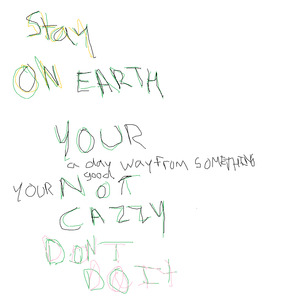 Stay
ON EARTH
YOUR
a day way from SOMETHING
good
YOUR NOT
CAZZY
DONT
DO IT